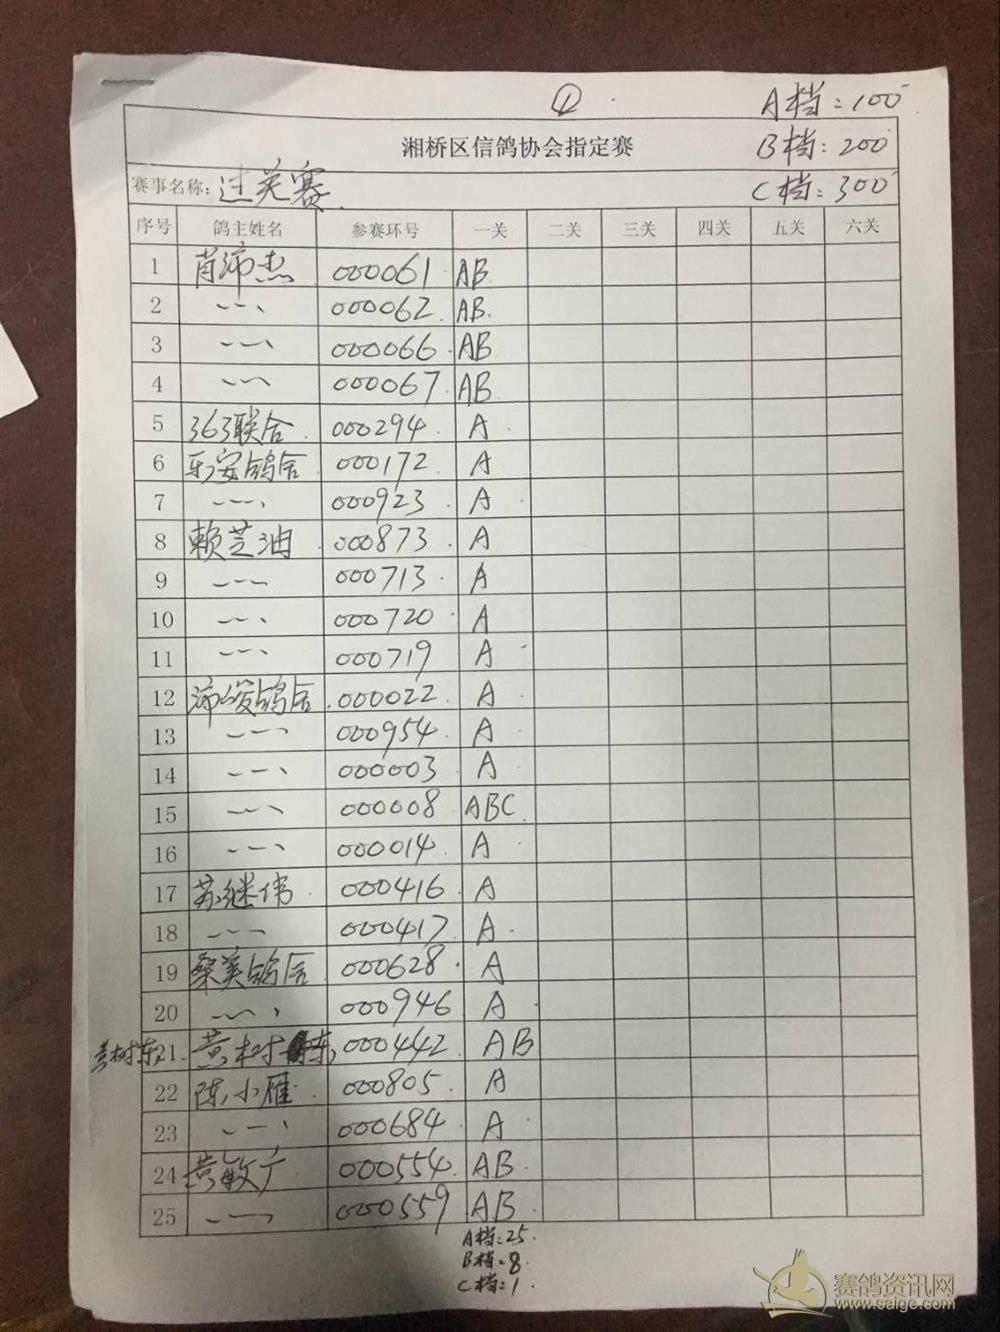 ① A档:100
湘桥区信鸽协会指定赛 B档:200
赛事名称:过关赛 C档:300
序号 鸽主姓名 参赛环号 一关 二关 三关 四关 五关 六关
1 肖沛杰 000061 AB
2 000062 AB
3 000066 AB
4 000067 AB
5 363联合 000294 A
6 乐安鸽舍 000172 A
7 000923 A
8 赖芝油 000873 A
9 000713 A
10 000720 A
11 000719 A
12 沛俊鸽舍 000022 A
13 000954 A
14 000003 A
15 000008 ABC
16 000014 A
17 苏继伟 000416 A
18 000417 A
19 桑美鸽舍 000628 A
20 000946 A
黄树东 21 黄树东 000442 AB
22 陈小雁 000805 A
23 000684 A
24 黄敏广 000554 AB
25 000559 AB
A档:25
B档:8
C档:1
赛鸽资讯网
www.saige.com